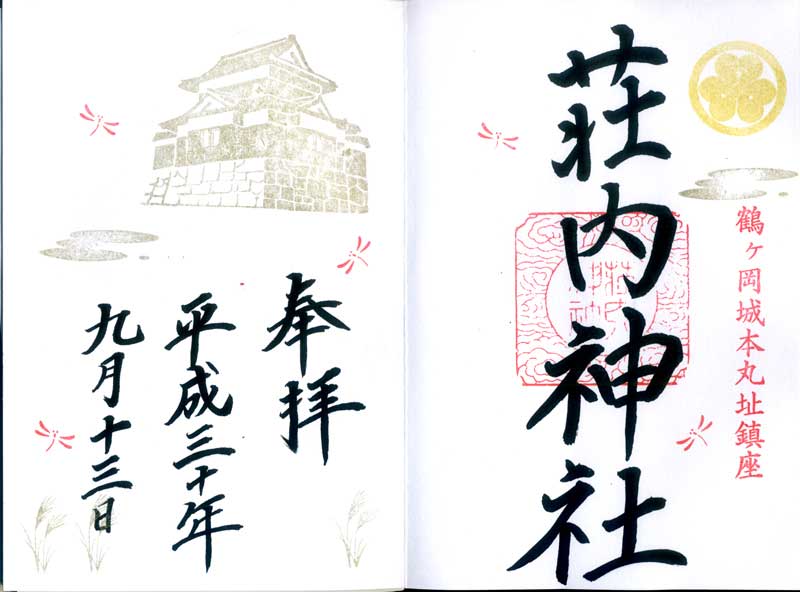 鶴ヶ岡城本丸址鎮座
荘内神社
奉拝
平成三十年
九月十三日